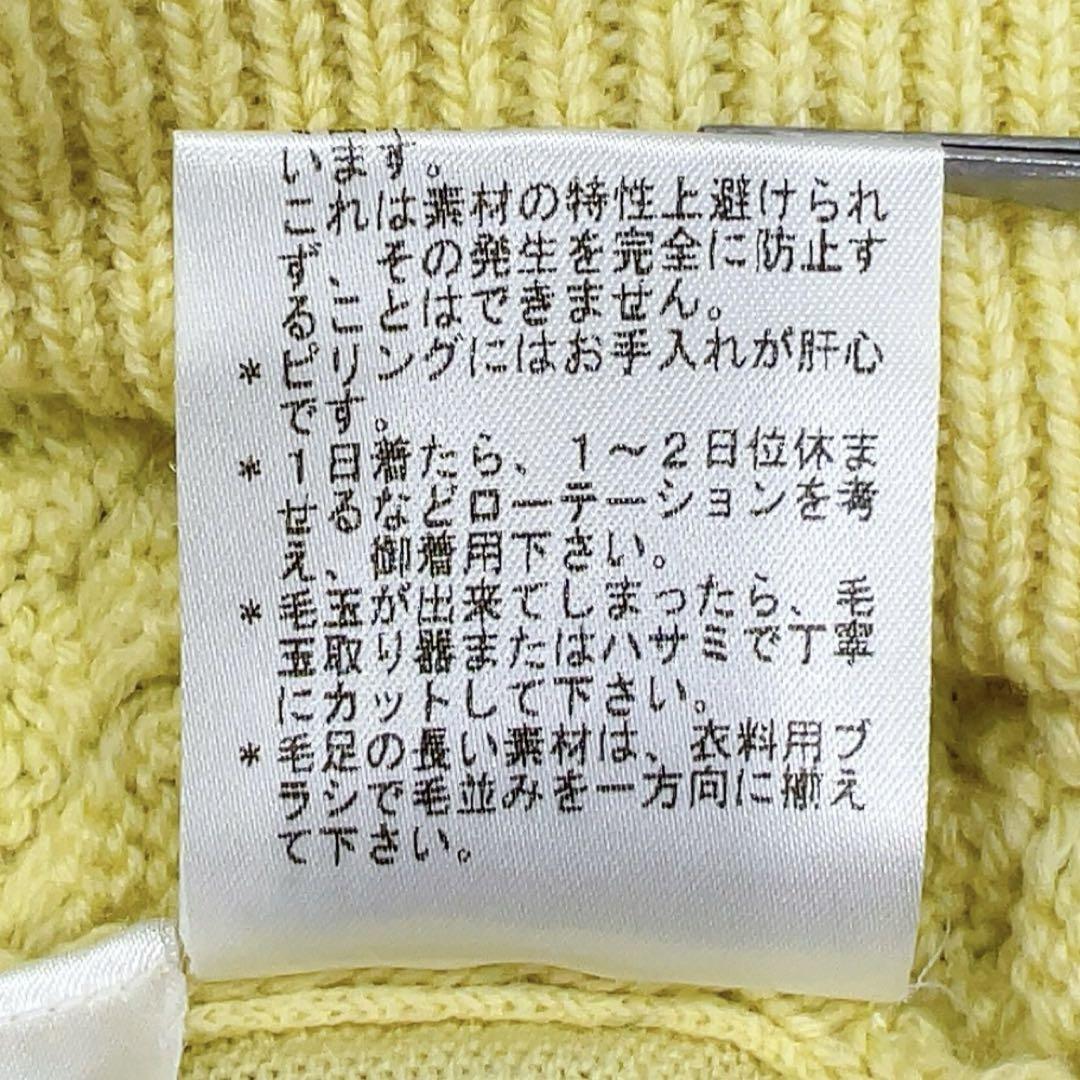 います。
これは素材の特性上避けられ
ず、その発生を完全に防止す
ることはできません。
*ピリングにはお手入れが肝心
です。
*1日着たら、1～2日位休ま
せるなどローテーションを考
え、御着用下さい。
*毛玉が出来てしまったら、毛
玉取り器またはハサミで丁寧
にカットして下さい。
*毛足の長い素材は、衣料用ブ
ラシで毛並みを一方向に揃え
て下さい。